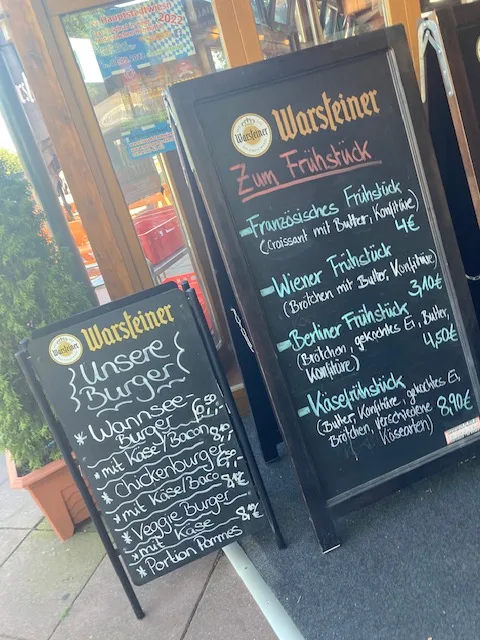 Hauptstadtwiesn
2022
Warsteiner
Warsteiner
Zum Frühstück
Französisches Frühstück
(Croissant mit Butter, Konfitüre)
4€
Wiener Frühstück
(Brötchen mit Butter, Konfitüre)
3,10€
Berliner Frühstück
(Brötchen, gekochtes Ei, Butter,
Konfitüre)
4,50€
Käsefrühstück
(Butter, Konfitüre, gekochtes Ei,
Brötchen, verschiedene
Käsearten)
8,90€
Warsteiner
Warsteiner
Unsere
Burger
* Wannsee-
Burger 6,50
* mit Käse/Bacon
Chickenburger
* mit Käse/Baco
* Veggie Burger
* mit Käse
* Portion Pommes